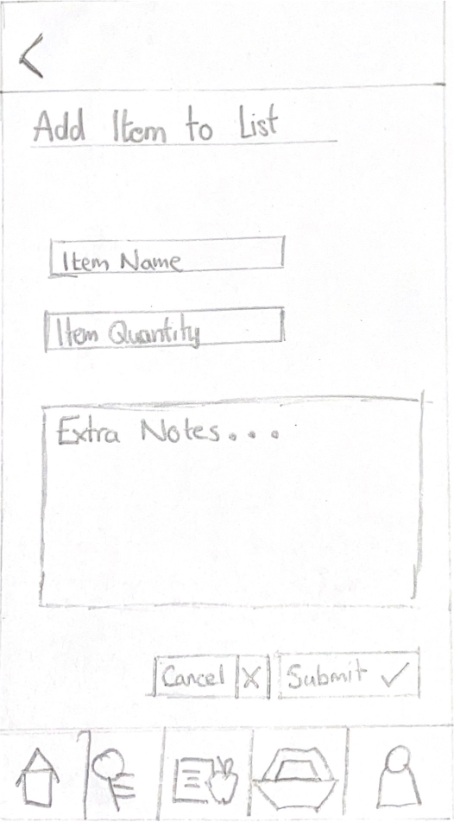 Add Item to List
Item Name
Item Quantity
Extra Notes...
Cancel X Submit ✓